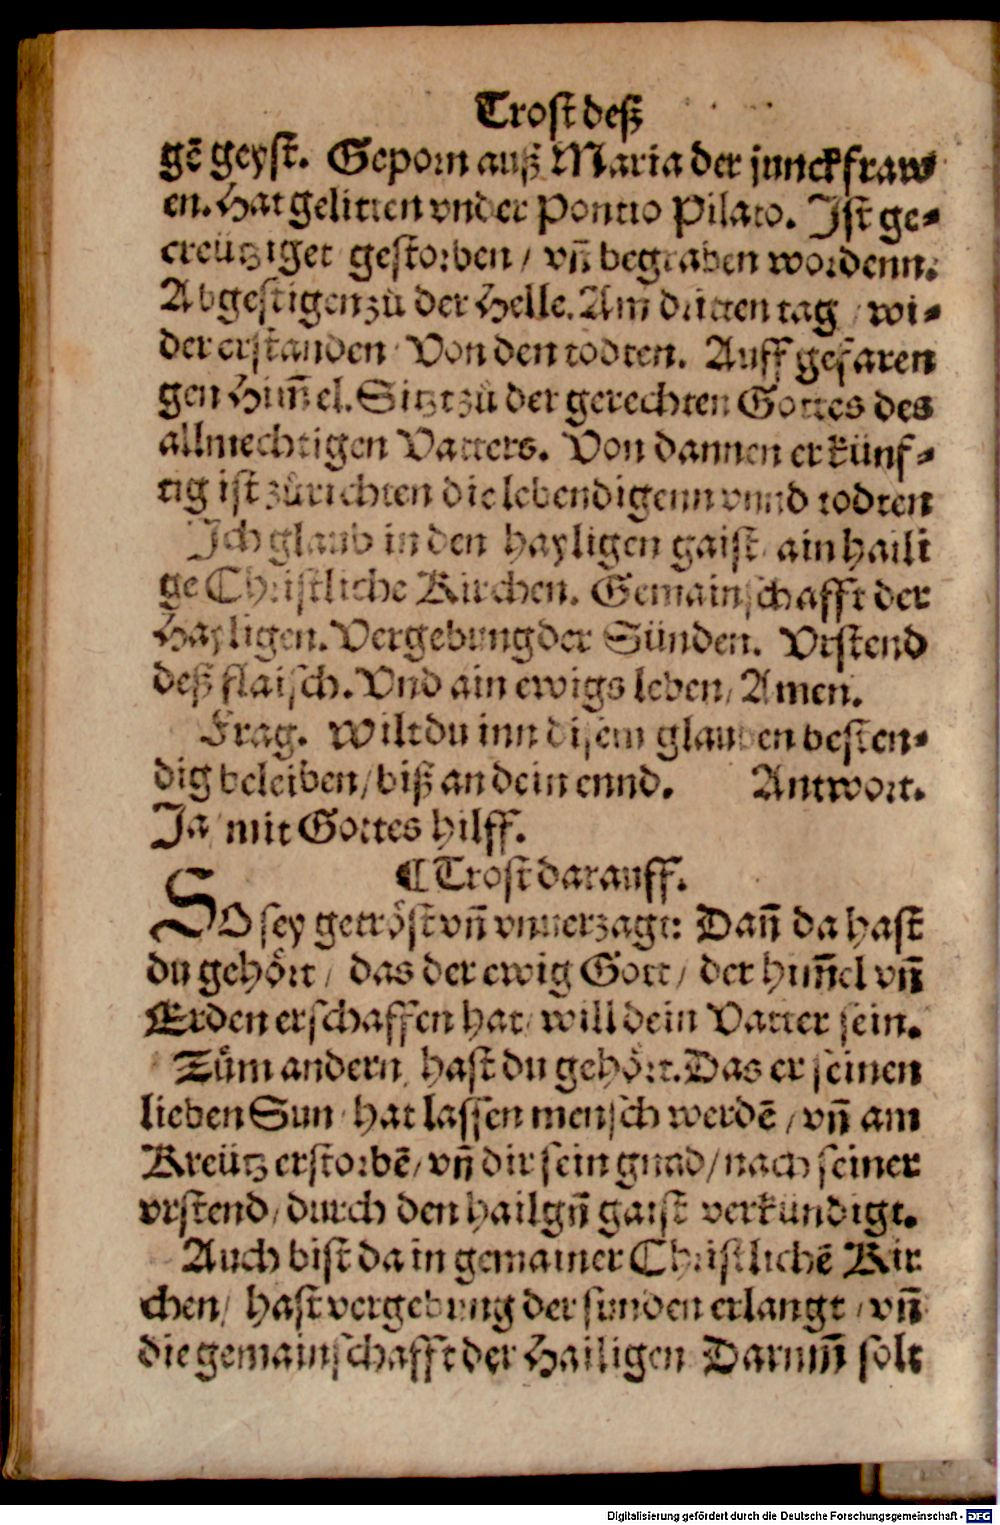 Trost deß
gē geyst. Geporn auß Maria der junckfraw
en. Hat gelitten vnder Pontio Pilato. Ist ge-
creütziget gestorben / vn̄ begraben wordenn.
Abgestigen zů der Helle. Am dritten tag / wi-
der erstanden Von den todten. Auff gefaren
gen Him̄el. Sitzt zů der gerechten Gottes des
allmechtigen Vatters. Von dannen er künf-
tig ist zůrichten die lebendigenn vnnd todten
Ich glaub in den hayligen gaist / ain haili
ge Christliche Kirchen. Gemainschafft der
Hayligen. Vergebung der Sünden. Vrstend
deß flaisch. Vnd ain ewigs leben / Amen.
Frag. Wilt du inn disem glauben besten-
dig beleiben / biß an dein ennd. Antwort.
Ja / mit Gottes hilff.
¶ Trost darauff.
SO sey getröst vn̄ vnuerzagt: Dan̄ da hast
du gehört / das der ewig Gott / der him̄el vn̄
Erden erschaffen hat / will dein Vatter sein.
Zům andern / hast du gehört. Das er seinen
lieben Sun / hat lassen mensch werdē / vn̄ am
Kreütz erstorbē / vn̄ dir sein gnad / nach seiner
vrstend / durch den hailgn̄ gaist verkündigt.
Auch bist da in gemainer Christlichē Kir
chen / hast vergebung der sunden erlangt / vn̄
die gemainschafft der Hailigen Darum̄ solt
Digitalisierung gefördert durch die Deutsche Forschungsgemeinschaft - DFG